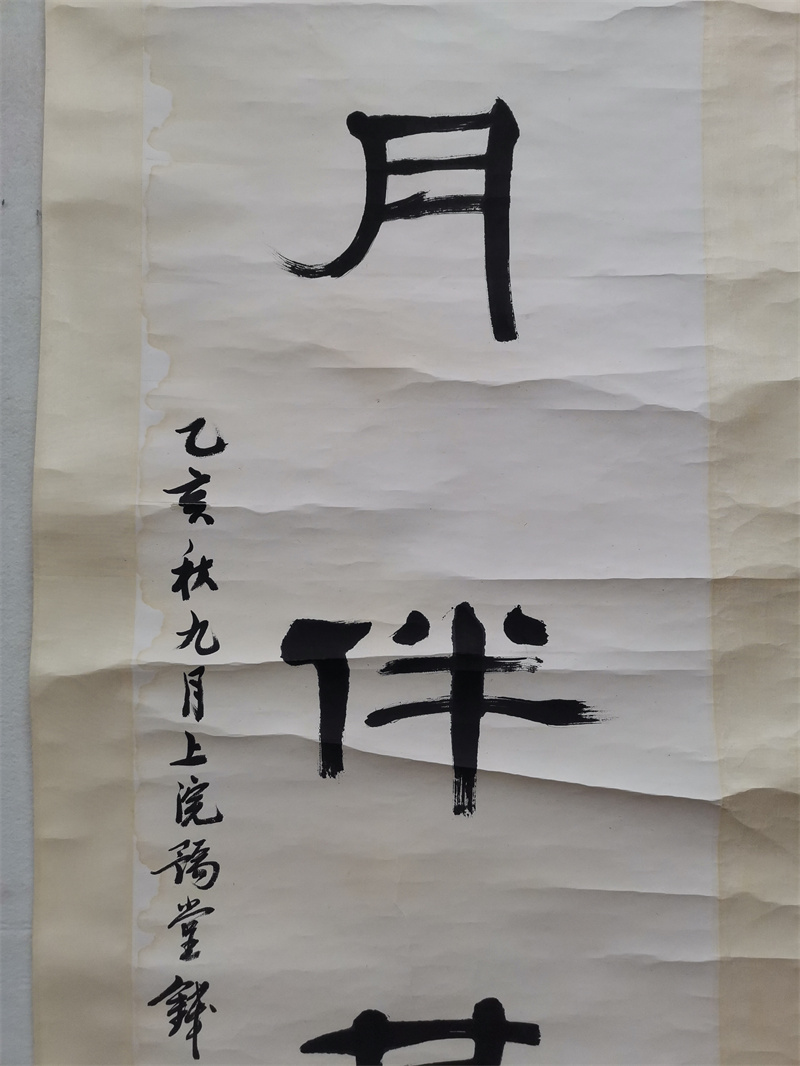 月伴
乙亥秋九月上浣豫堂錢